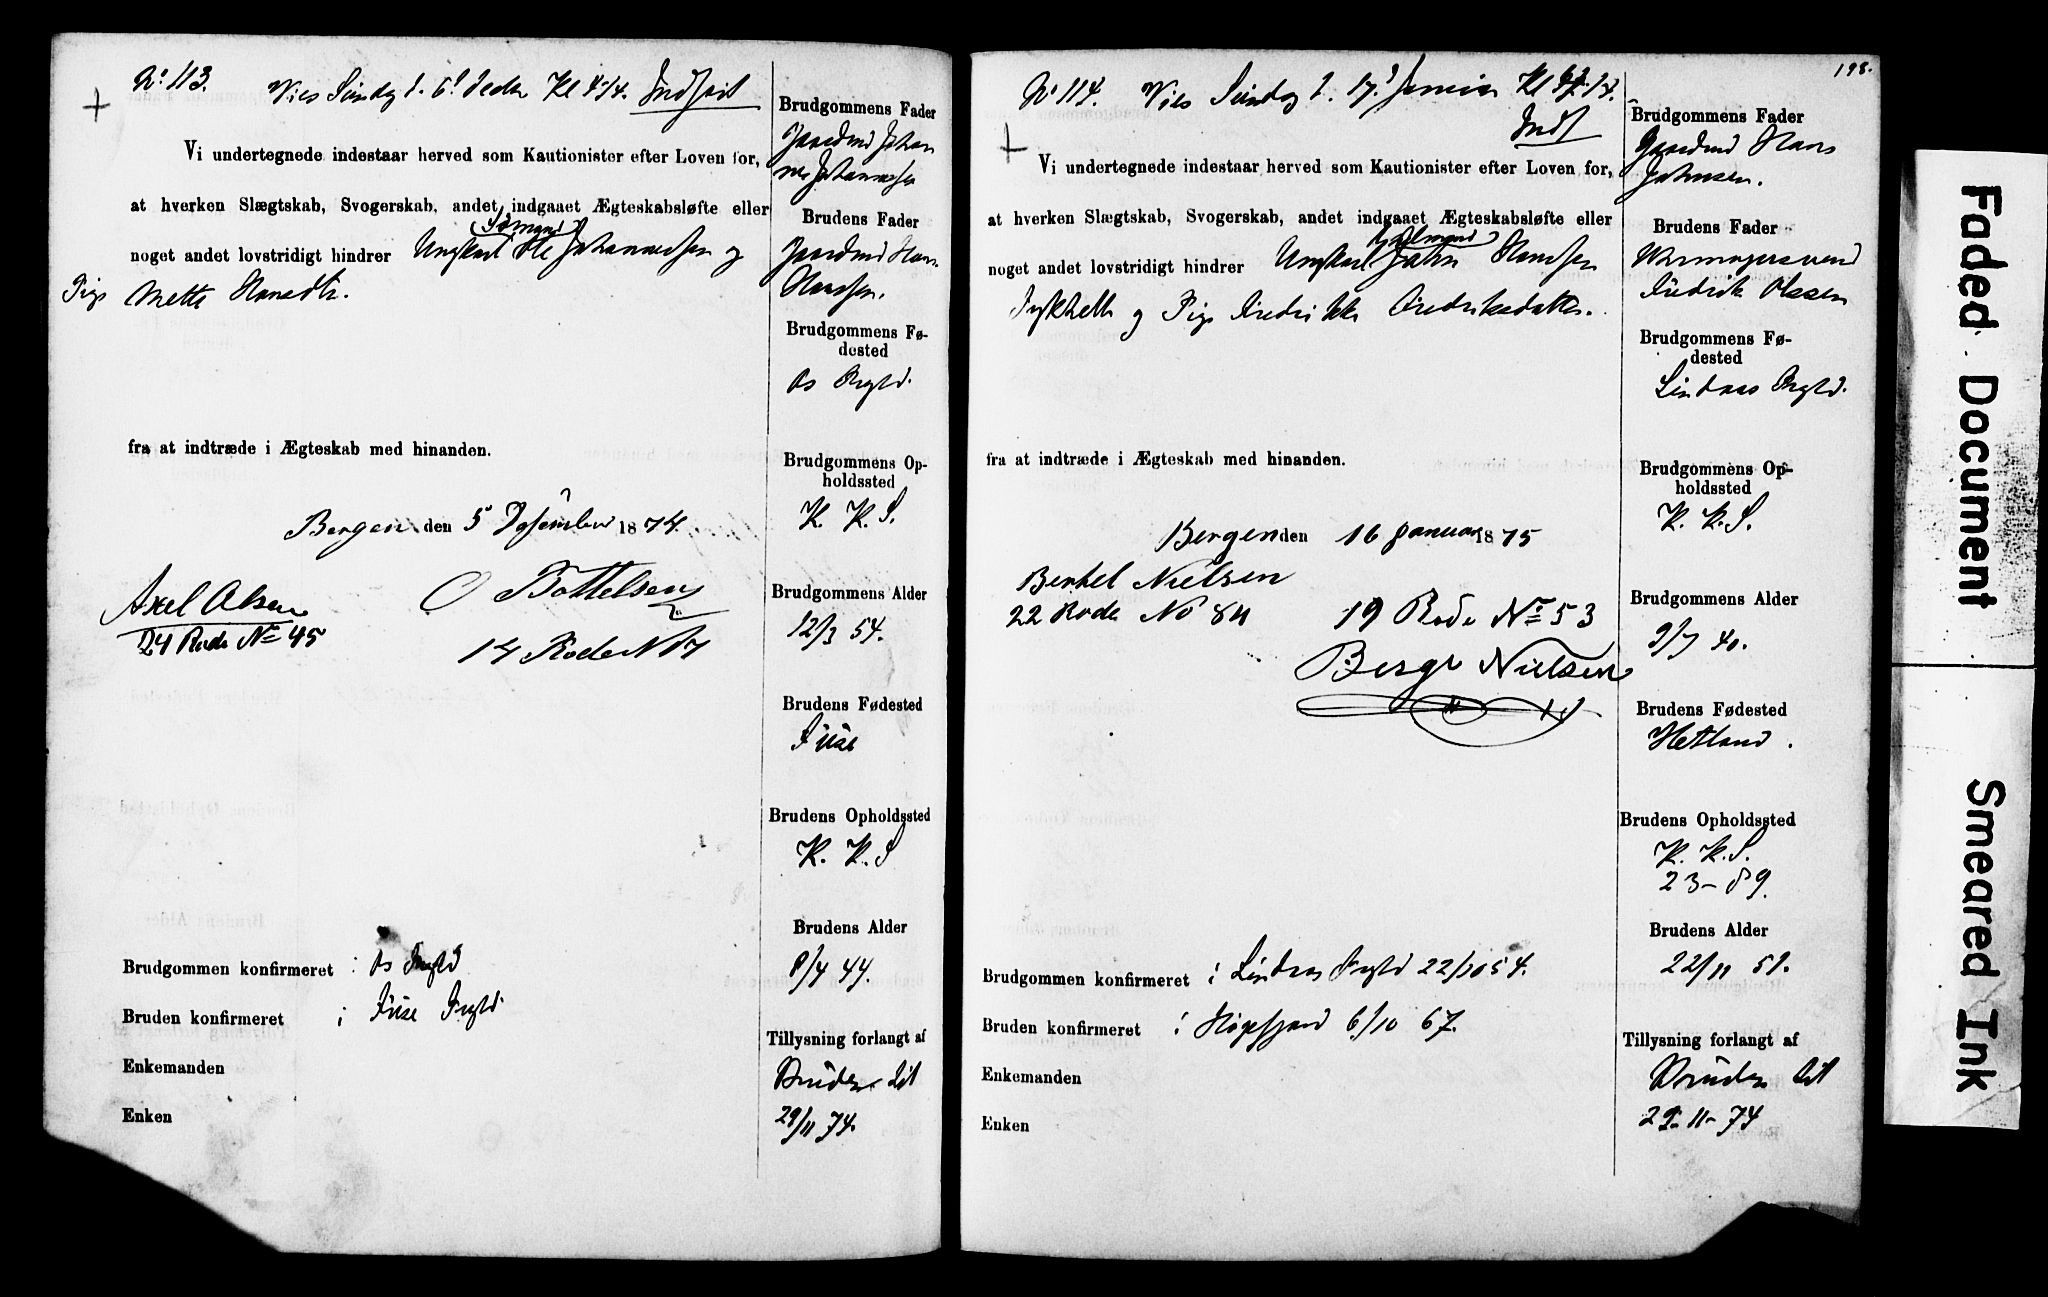 No 113. Vies Søndag d. 6t Decbr Kl 4 3/4. Indført
Vi undertegnede indestaar herved som Kautionister efter Loven for,
at hverken Slægtskab, Svogerskab, andet indgaaet Ægteskabsløfte eller
(Sømand)
noget andet lovstridigt hindrer Ungkarl Ole Johannessen og
Pige Mette Hansdtr.
fra at indtræde i Ægteskab med hinanden.
Bergen den 5 December 1874.
Axel Olsen
24 Rode No 45
O Bottelsen
14 Rode N 17
Brudgommen konfirmeret i Os Prgld
Bruden konfirmeret i Fuse Prgld
Enkemanden
Enken
Brudgommens Fader
Gaardmd Johan
nes Johannessen
Brudens Fader
Gaardmd Hans
Hansen.
Brudgommens Fø-
dested
Os Prgld.
Brudgommens Op-
holdssted
K. K. S.
Brudgommens Alder
12/3 54.
Brudens Fødested
Fuse
Brudens Opholdssted
K. K. S
Brudens Alder
8/4 44.
Tillysning forlangt af
Bruden
29/11 74.
198.
No 114. Vies Søndag d. 17d Januar Kl
Indf
Vi undertegnede indestaar herved som Kautionister efter Loven for,
at hverken Slægtskab, Svogerskab, andet indgaaet Ægteskabsløfte eller
noget andet lovstridigt hindrer Ungkarl John Hansen
og Pige Fredrikke Fredriksdatter.
fra at indtræde i Ægteskab med hinanden.
Bergen den 16 Januar 1875
Berthel Nielsen
22 Rode No 84
19 Rode No 53
Berge Nielsen
Brudgommen konfirmeret i Lindaas Prgld 22/10 54.
Bruden konfirmeret i Høgsfjord 6/10 67.
Enkemanden
Enken
Brudgommens Fader
Gaardmd Hans
Johnsen.
Brudens Fader
Fredrik Olssen
Brudgommens Fø-
dested
Lindaas Prgld.
Brudgommens Op-
holdssted
K. K. S.
Brudgommens Alder
9/7 40.
Brudens Fødested
Hetland.
Brudens Opholdssted
K. K. S.
23-89.
Brudens Alder
22/11 51.
Tillysning forlangt af
Bruden
29-11-74
Faded Document
Smeared Ink